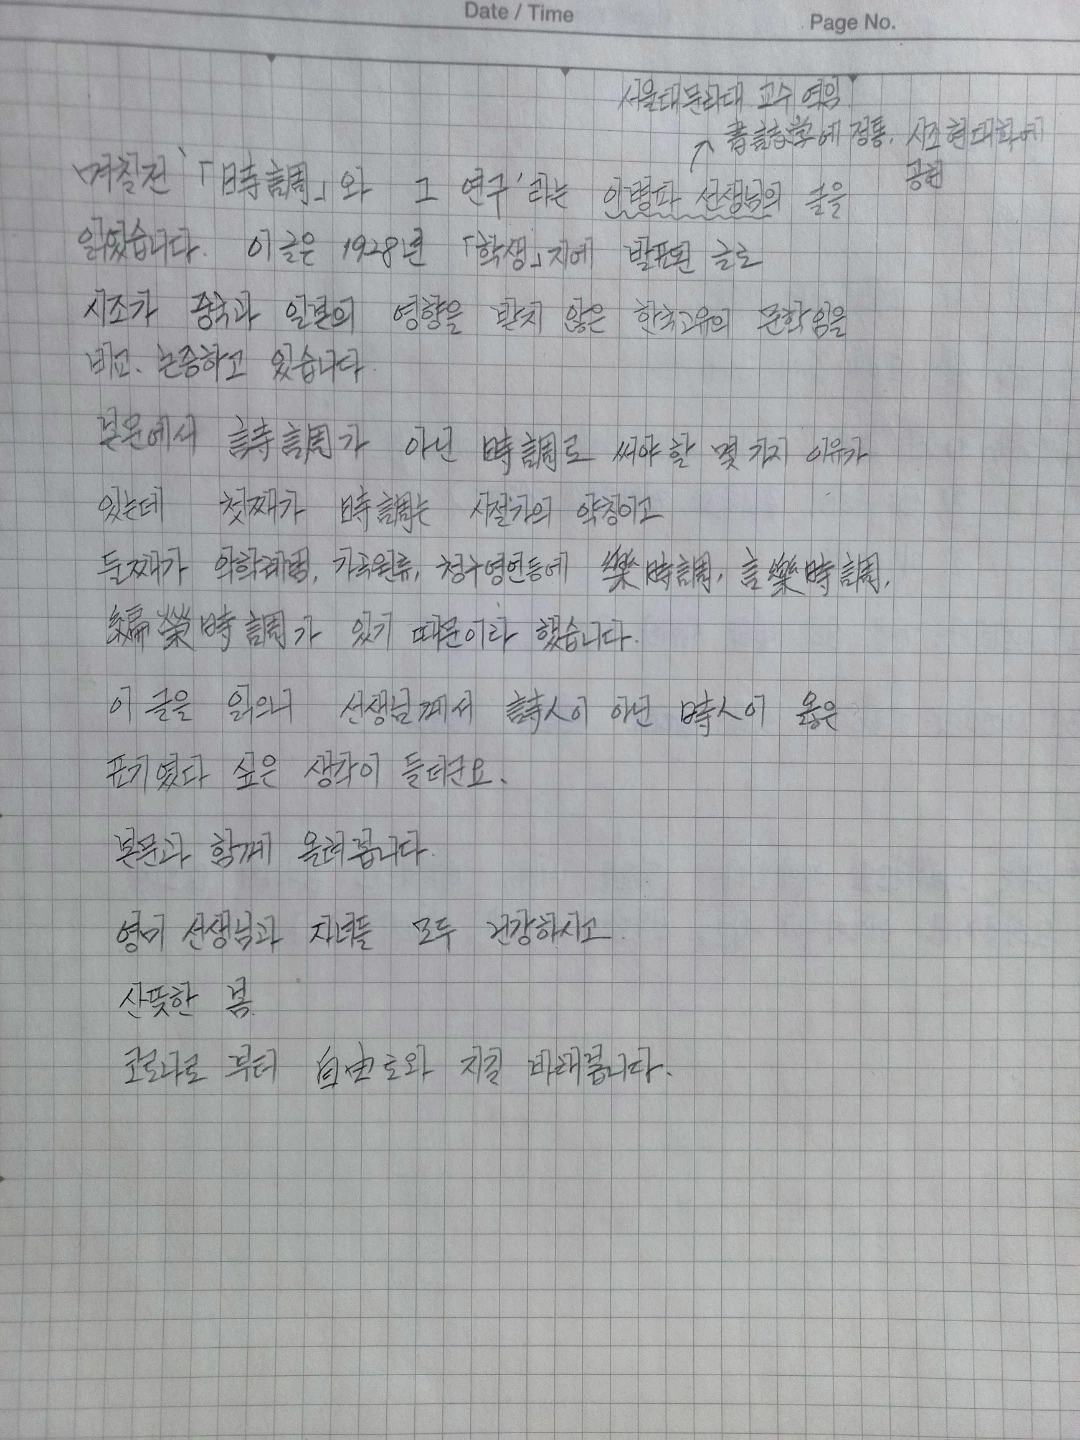 Date / Time
Page No.
서울대 문리대 교수 역임
書誌学에 정통, 시조 현대화에
공헌
며칠전 '「時調」와 그 연구'라는 안병파 선생님의 글을
읽었습니다. 이 글은 1928년 「학생」지에 발표된 글로
시조가 중국과 일본의 영향을 받지 않은 한국고유의 문학임을
비교, 논증하고 있습니다.
본문에서 詩調가 아닌 時調로 써야 할 몇 가지 이유가
있는데 첫째가 時調는 시절가의 약칭이고
둘째가 악학궤범, 가곡원류, 청구영언등에 樂時調, 言樂時調,
編樂時調가 있기 때문이라 했습니다.
이 글을 읽으니 선생님께서 詩人이 아닌 時人이 옳은
표기였다 싶은 생각이 들더군요.
본문과 함께 올려봅니다.
영미 선생님과 자녀들 모두 건강하시고
산뜻한 봄
코로나로 부터 自由로와 지길 바래봅니다.